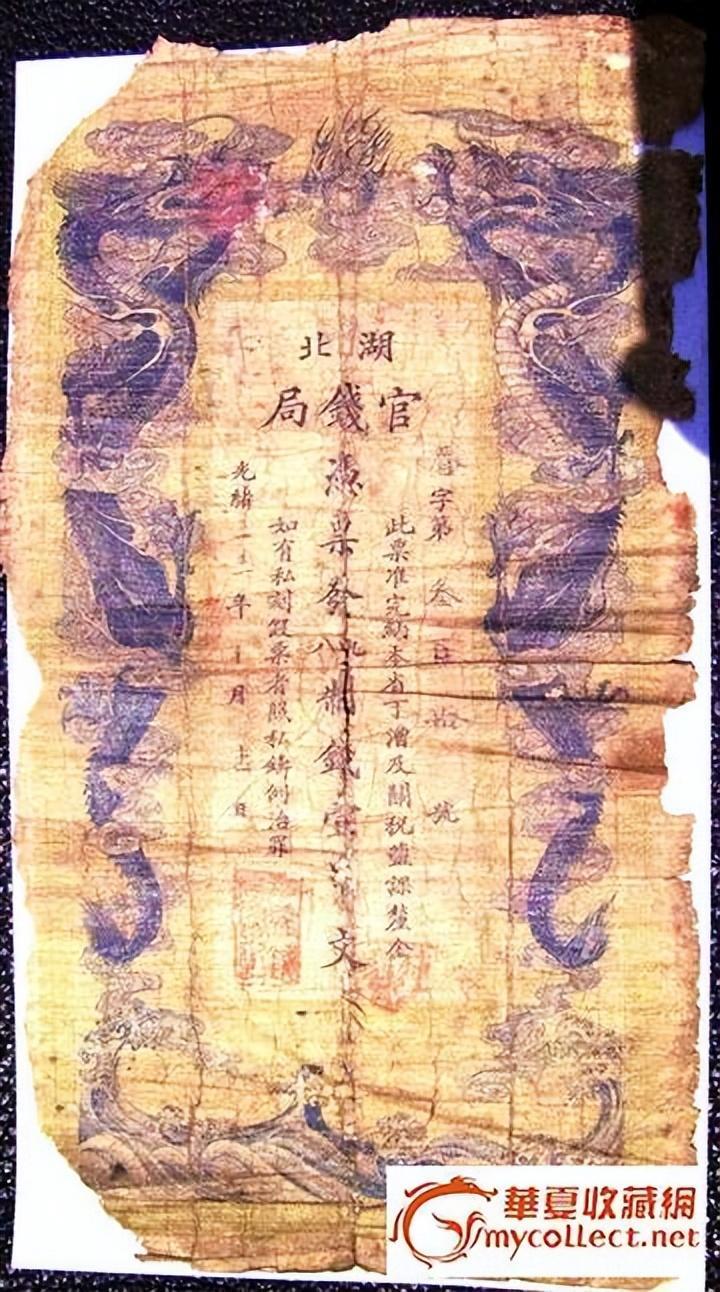 湖北
官錢局
字第叁百拾號
此票准完納本省丁漕及關稅鹽課釐金
憑票發九八制錢壹文
如有私刻假票者照私鑄例治罪
光緒年十月日
華夏收藏網
mycollect.net